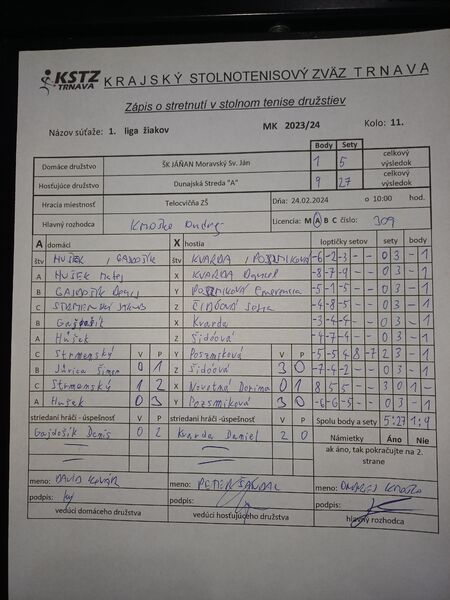 KSTZ TRNAVA KRAJSKÝ STOLNOTENISOVÝ ZVÄZ TRNAVA
Zápis o stretnutí v stolnom tenise družstiev
Názov súťaže: 1. liga žiakov MK 2023/24 Kolo: 11.
Body Sety
Domáce družstvo ŠK JÁŇAN Moravský Sv. Ján 1 5 celkový výsledok
Hosťujúce družstvo Dunajská Streda "A" 9 27 celkový výsledok
Hracia miestnosť Telocvičňa ZŠ Dňa: 24.02.2024 o 10:00 hod.
Hlavný rozhodca Licencia: M A B C číslo: 309
A domáci X hostia loptičky setov sety body
štv HUŠEK, GAJDOŠÍK štv KVARDA, -6 -2 -3 - - 0 3 - 1
A HUŠEK Matej X KVARDA Daniel -8 -7 -9 - - 0 3 - 1
B GAJDOŠÍK Denis Y -5 -1 -5 - - 0 3 - 1
C Z -4 -8 -5 - - 0 3 - 1
B Gajdošík X Kvarda -3 -4 -4 - - 0 3 - 1
A Hušek Z -4 -7 -4 - - 0 3 - 1
C Strmenský V P Y Poszmiková V P -5 -5 4 8 -7 2 3 - 1
B Jurica Šimon 0 1 Z 3 0 -7 -4 -2 - - 0 3 - 1
C Strmenský 1 2 X Novotná Dorima 0 1 8 5 5 - - 3 0 1 -
A Hušek 0 3 Y Pozsmiková 3 0 -6 -6 -5 - - 0 3 - 1
striedaní hráči - úspešnosť V P striedaní hráči - úspešnosť V P Spolu body a sety 5:27 1:9
Gajdošík Denis 0 2 Kvarda Daniel 2 0 Námietky Áno Nie
ak áno, tak pokračujte na 2. strane
meno: DAVID meno: PETER meno: ONDREJ
podpis: podpis: podpis:
vedúci domáceho družstva vedúci hosťujúceho družstva hlavný rozhodca